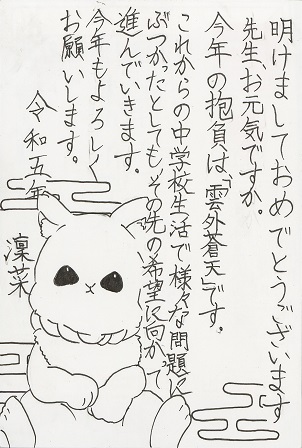 明けましておめでとうございます
先生、お元気ですか。
今年の抱負は、「雲外蒼天」です。
これからの中学校生活で様々な問題に
ぶつかったとしても、その先の希望に向かって
進んでいきます。
今年もよろしく
お願いします。
令和五年
凜菜